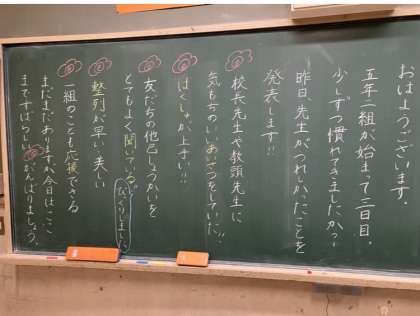 おはようございます。
五年二組が始まって三日目。
少しずつ慣れてきましたか？
昨日、先生がうれしかったことを
発表します!!
校長先生や教頭先生に
気もちのいいあいさつをしていた!!
はくしゅが上手い!!
友だちの他己しょうかいを
とてもよく聞いている。
びっくりしました
整列が早い、美しい
一組のことも応援できる
まだまだありますが今日はここ
まで。すばらしい
がんばりましょう。